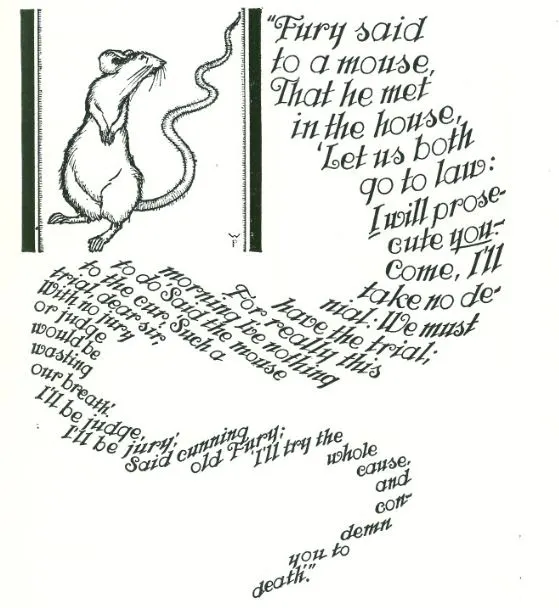 W
F
"Fury said
to a mouse,
That he met
in the house,
'Let us both
go to law:
I will prose-
cute you.-
Come, I'll
take no de-
nial: We must
have the trial;
For really this
morning I've nothing
to do.' Said the mouse
to the cur, 'Such a
trial, dear sir,
With no jury
or judge
would be
wasting
our breath.'
I'll be judge,
I'll be jury,'
Said cunning
old Fury;
'I'll try the
whole
cause,
and
con-
demn
you to
death.'"